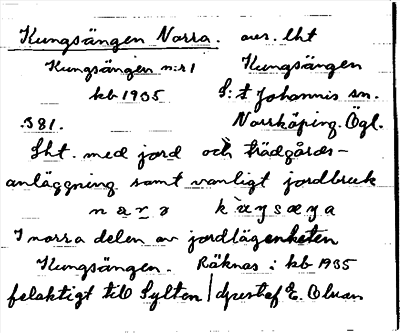 Kungsängen Norra. avs. lht
Kungsängen n:r 1 Kungsängen
kb 1935 S:t Johannis sn.
381. Norrköping. Ögl.
Lht. med jord och trädgårds-
anläggning samt vanligt jordbruk
I norra delen av jordlägenheten
Kungsängen. Räknas i kb 1935
felaktigt till Sylten